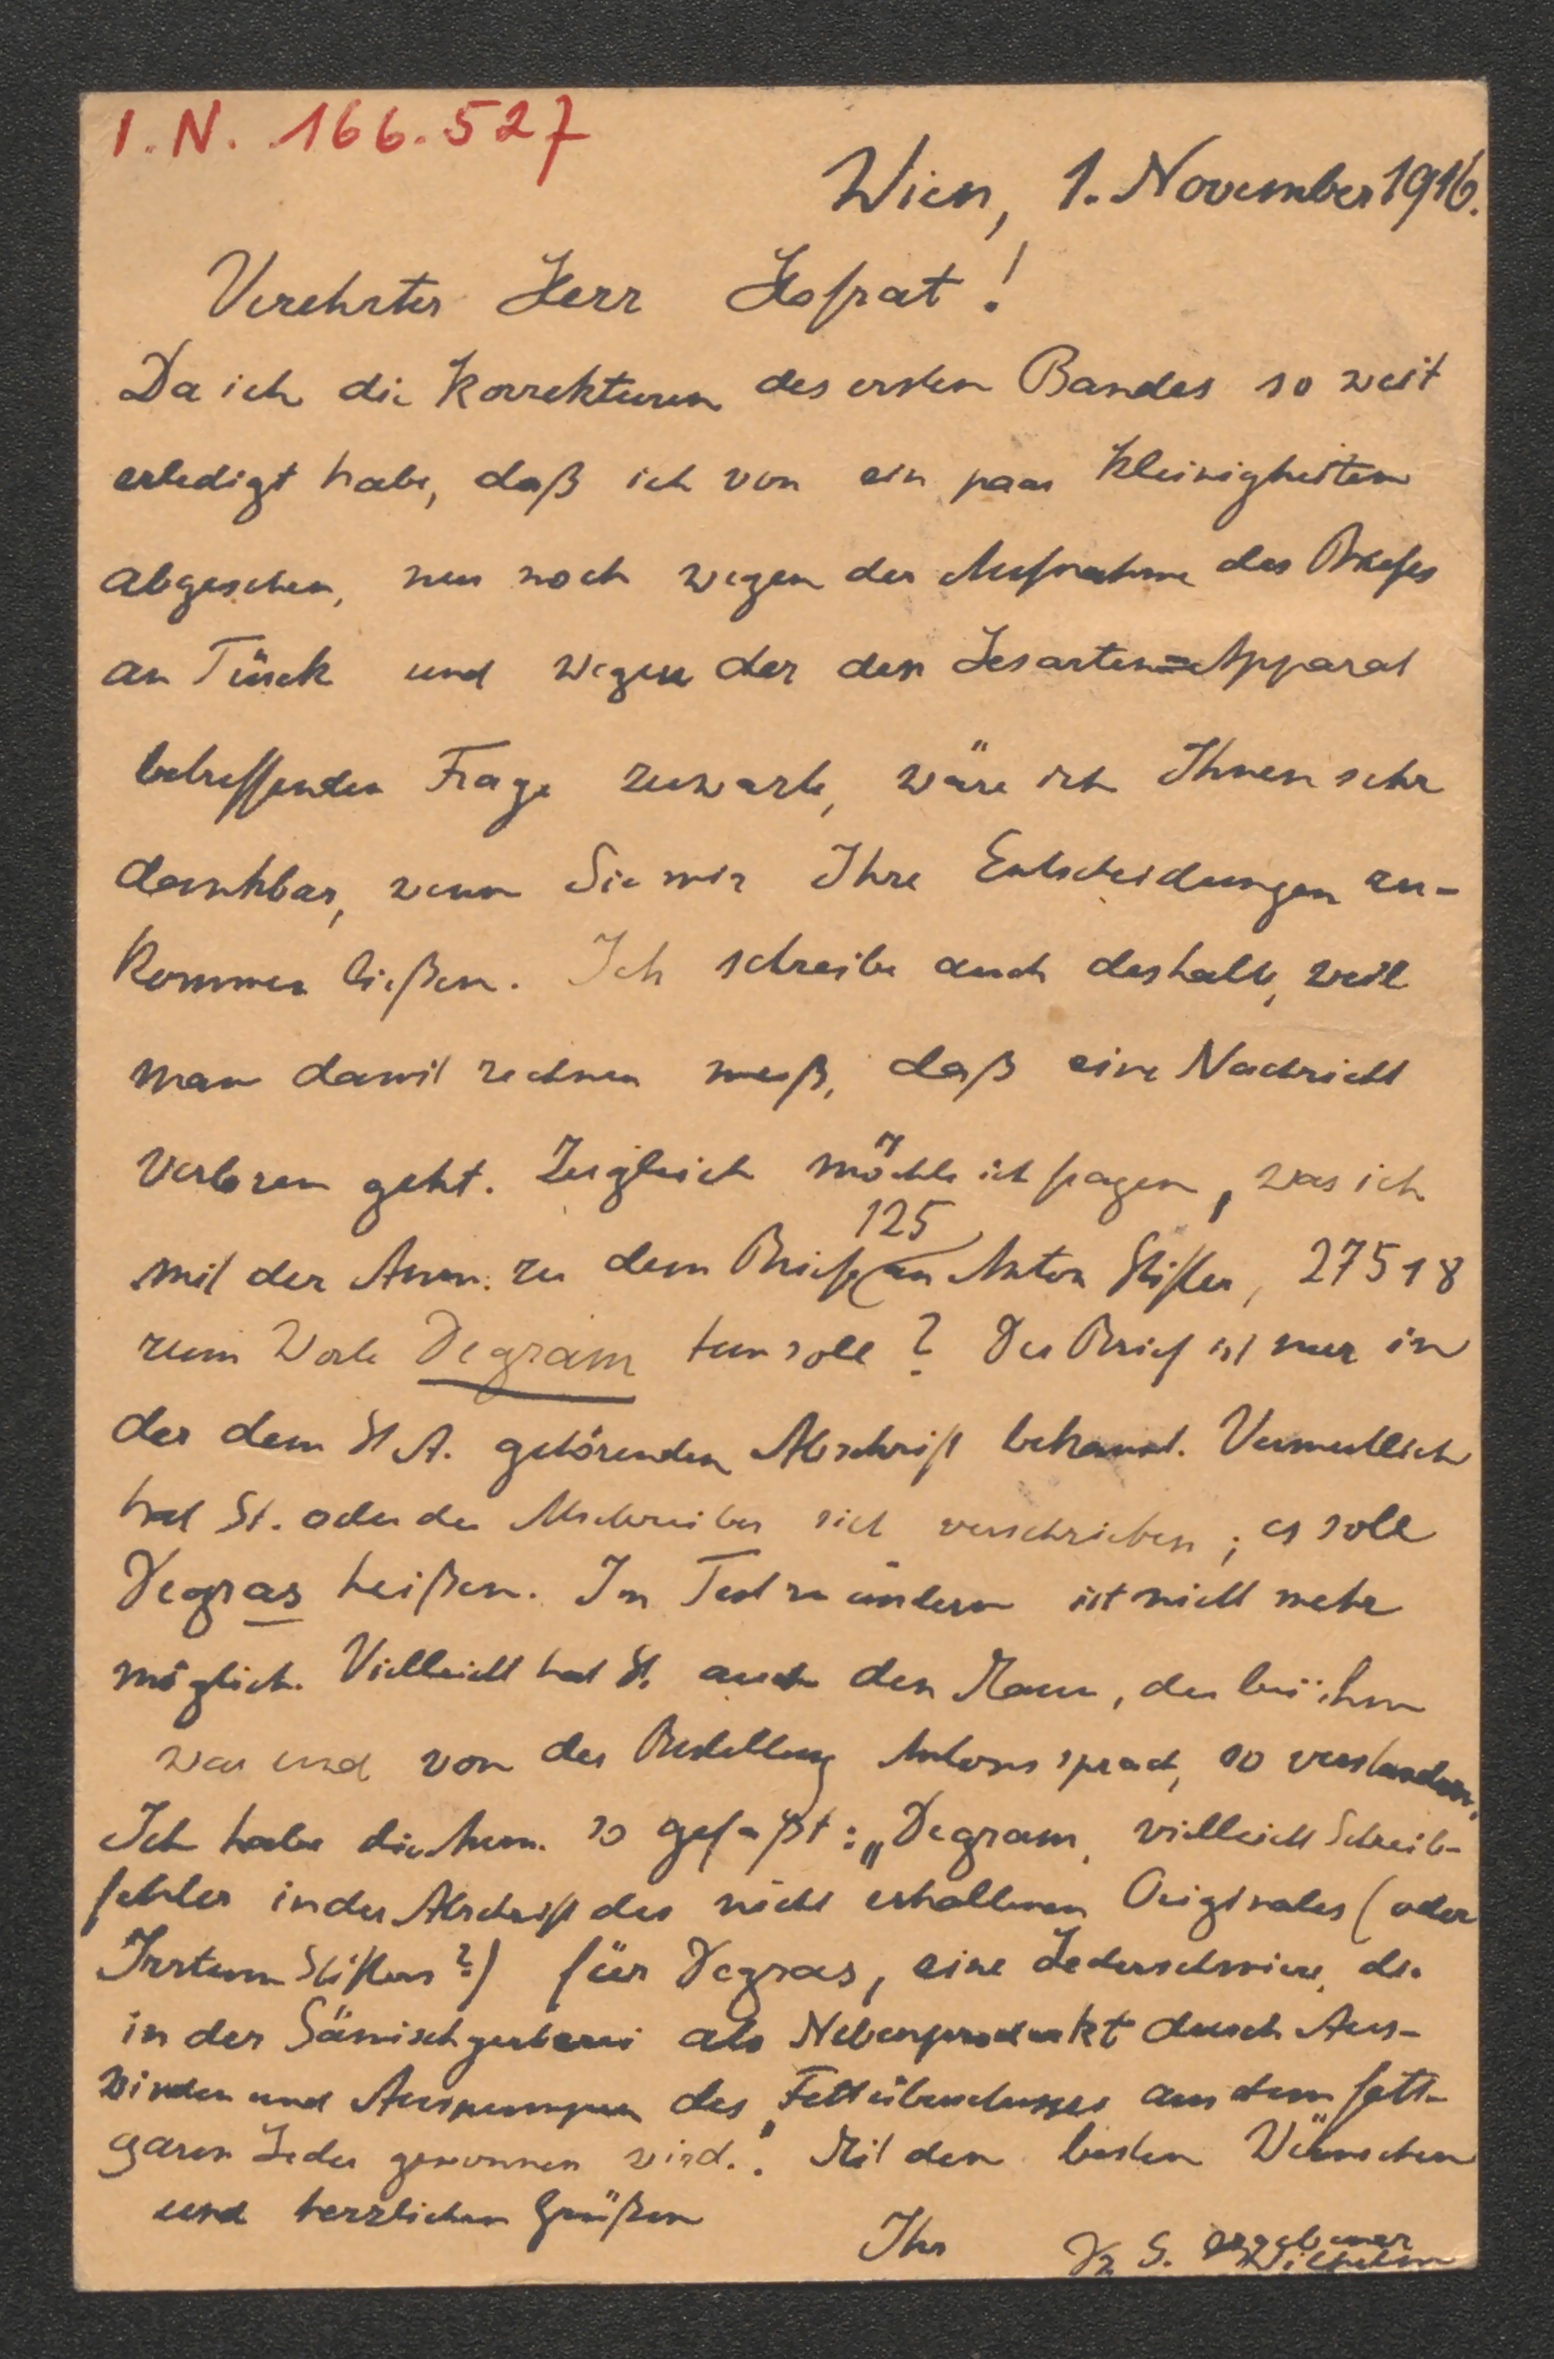 I.N. 166.527
Wien, 1. November 1916.
Verehrter Herr Hofrat!
Da ich die Korrekturen des ersten Bandes so weit
erledigt habe, daß ich von ein paar Kleinigkeiten
abgesehen, nur noch wegen der Aufnahme des Briefes
an Türck und wegen der den Lesarten=Apparat
betreffenden Frage zuwarte, wäre ich Ihnen sehr
dankbar, wenn Sie mir Ihre Entscheidungen zu-
kommen ließen. Ich schreibe auch deshalb, weil
man damit rechnen muß, daß eine Nachricht
verloren geht. Zugleich möchte ich fragen, was ich
125
mit der Anm. zu dem Briefe an Anton Stifter, 275 18
zum Worte Degram tun soll? Der Brief ist nur in
der dem St A. gehörenden Abschrift bekannt. Vermutlich
hat St. oder der Abschreiber sich verschrieben; es soll
Degras heißen. Im Text zu ändern ist nicht mehr
möglich. Vielleicht hat St. auch den Mann, der bei ihm
war und von der Bestellung Antons sprach, so verstanden.
Ich habe die Anm. so gefaßt: „Degram, vielleicht Schreib-
fehler in der Abschrift des nicht erhaltenen Originales (oder
Irrtum Stifters?) für Degras, eine Lederschmiere, die
in der Sämischgerberei als Nebenprodukt durch Aus-
winden und Auspumpen des Fettüberschusses aus dem fett-
garen Leder gewonnen wird.". Mit den besten Wünschen
und herzlichen Grüßen
Ihr ergebener
Dr G. Wilhelm